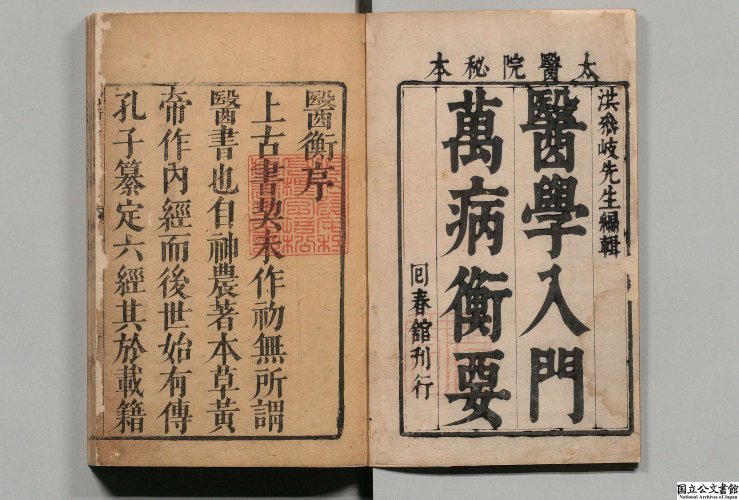 太醫院秘本
洪飛岐先生編輯
醫學入門
萬病衡要
囘春舘刊行
醫衡序
上古書契未作初無所謂
醫書也自神農著本草黄
帝作内經而後世始有傳
孔子纂定六經其於載籍
国立公文書館
National Archives of Japan